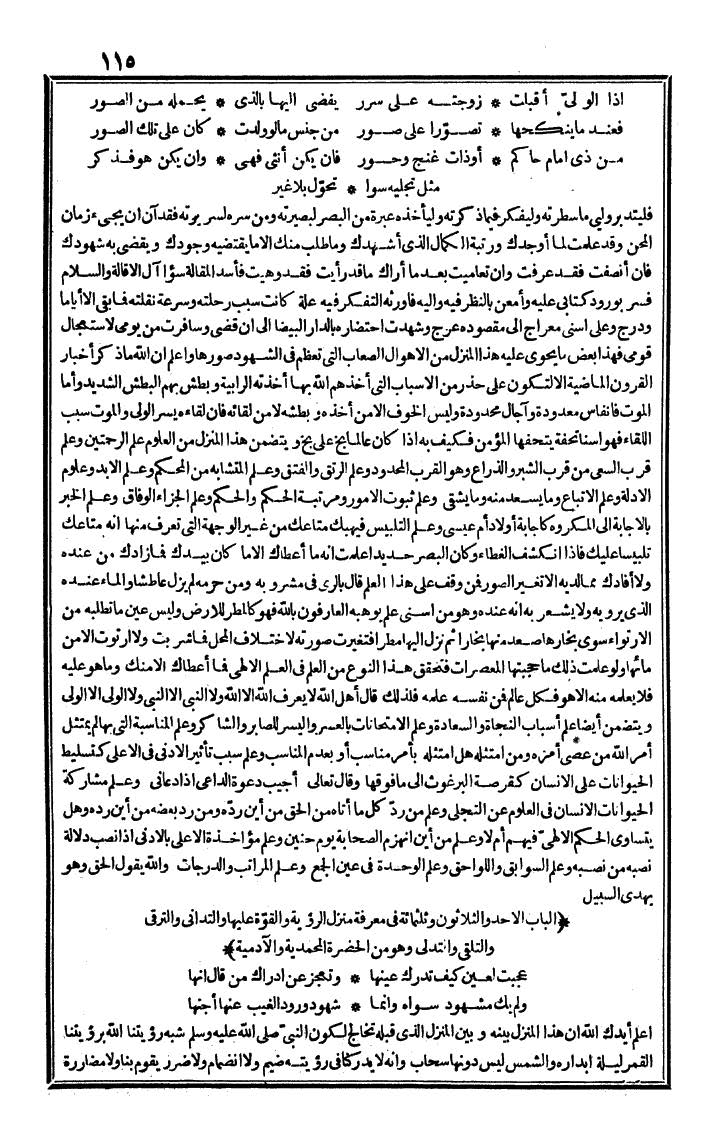 ١١٥
اذا الولىّ أقبات * زوجتـــه عـــلى سرر يفضى اليها بالذى * يحــمله مــن الصور
فعنـد ما ينكحها * تصـــوّرا على صــور من جنس مالو ولدت * كان على تلك الصور
مــن ذى امام حاكم * أوذات غنج وحــور فان يكن أنثى فهى * وان يكن هو فذكر
مثل تجليه سوا * تحوّل بلا غير
فليتدبر وليى ما سطرته وليفكر فيما ذكرته وليأخذه عبرة من البصر لبصيرته ومن سره لسريرته فقد آن ان يجىء زمان
المحن وقد علمت لما أوجدك ورتبة الكمال الذى أشهدك وما طلب منك الا ما يقتضيه وجودك ويقضى به شهودك
فان أنصفت فقد عرفت وان تعاميت بعد ما أراك ما قد رأيت فقد وهيت فأسد المقالة سؤال الاقالة والسلام
فسر بورود كتابى عليه وأمعن بالنظر فيه واليه فاورثه التفكر فيه علة كانت سبب رحلته وسرعة نقلته فما بقى الا أياما
ودرج وعلى اسنى معراج الى مقصوده عرج وشهدت احتضاره بالدار البيضا الى ان قضى وسافرت من يومى لاستعجال
قومى فهذا بعض ما يحوى عليه هذا المنزل من الاهوال الصعاب التى تعظم فى الشهود صورها واعلم ان الله ما ذكر أخبار
القرون الماضية الالتكون على حذر من الاسباب التى أخذهم الله بها أخذته الرابية وبطش بهم البطش الشديد وأما
الموت فانفاس معدودة وآجال محدودة وليس الخوف الا من أخذه وبطشه لا من لقائه فان لقاءه يسر الولى والموت سبب
اللقاء فهو اسنا تحفة يتحفها المؤمن فكيف به اذا كان عالما بخ على بخ ويتضمن هذا المنزل من العلوم علم الرحمتين وعلم
قرب السعى من قرب الشبر والذراع وهو القرب المحدود وعلم الرتق والفتق وعلم المتشابه من المحكم وعلم الابد وعلوم
الادلة وعلم الاتباع وما يسعد منه وما يشقى وعلم ثبوت الامور ومرتبة الحكم والحكم وعلم الجزاء الوفاق وعلم الخبر
بالاجابة الى المكروه كاجابة أولاد أم عيسى وعلم التلبيس فيهبك متاعك من غير الوجهة التى تعرف منها انه متاعك
تلبيسا عليك فاذا انكشف الغطاء وكان البصر حديدا علمت انه ما أعطاك الا ما كان بيدك فما زادك من عنده
ولا أفادك مما لديه الا تغير الصور فمن وقف على هذا العلم قال بالرى فى مشروبه ومن حرمه لم يزل عاطشا والماء عنده
الذى يرويه ولا يشعر به انه عنده وهو من اسنى علم يوهبه العارفون بالله فهو كالمطر للارض وليس عين ما تطلبه من
الارتواء سوى بخارها صعد منها بخارا ثم نزل اليها مطرا فتغيرت صورته لاختلاف المحل فما شربت ولا ارتوت الا من
مائها ولو علمت ذلك ما حجبتها المعصرات فتحقق هذا النوع من العلم فى العلم الالهى فما أعطاك الا منك وما هو عليه
فلا يعلمه منه الا هو فكل عالم فمن نفسه علمه فلذلك قال أهل الله لا يعرف الله الا الله ولا النبى الا النبى ولا الولى الا الولى
ويتضمن أيضا علم أسباب النجاة والسعادة وعلم الامتحانات بالعسر واليسر للصابر والشاكر وعلم المناسبة التى بها لم يمتثل
أمر الله من عصى أمره ومن امتثله هل امتثله بأمر مناسب أو بعدم المناسب وعلم سبب تأثير الادنى فى الاعلى كتسليط
الحيوانات على الانسان كقرصة البرغوث الى ما فوقها وقال تعالى أجيب دعوة الداعى اذا دعانى وعلم مشاركة
الحيوانات الانسان فى العلوم عن التجلى وعلم من ردّ كل ما أتاه من الحق من أين ردّه ومن رد بعضه من أين رده وهل
يتساوى الحكم الالهىّ فيهم أم لا وعلم من أين انهزم الصحابة يوم حنين وعلم مؤاخذة الاعلى بالادنى اذا نصب دلالة
نصبه من نصبه وعلم السوابق واللواحق وعلم الوحدة فى عين الجمع وعلم المراتب والدرجات والله يقول الحق وهو
يهدى السبيل
﴿الباب الاحد والثلاثون وثلثمائة فى معرفة منزل الرؤية والقوّة عليها والتدانى والترقى
والتلقى والتدلى وهو من الحضرة المحمدية والآدمية﴾
عجبت لعين كيف تدرك عينها * وتعجز عن ادراك من قال انها
ولم يك مشهود سواه وانما * شهود ورود الغيب عنها أجنها
اعلم أيدك الله ان هذا المنزل بينه وبين المنزل الذى قبله تخالج لكون النبىّ صلى الله عليه وسلم شبه رؤيتنا الله برؤيتنا
القمر ليلة ابداره والشمس ليس دونها سحاب وانه لا يدركنا فى رؤيته ضيم ولا انضمام ولا ضرر يقوم بنا ولا مضاررة